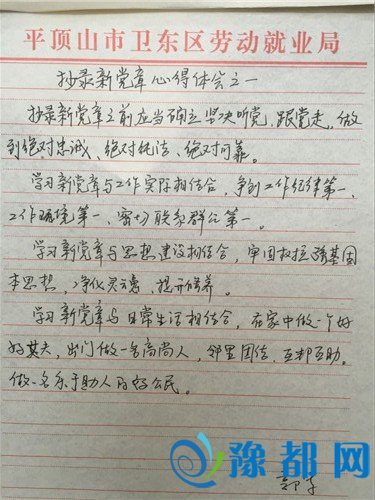 平顶山市卫东区劳动就业局
抄录新党章心得体会之一
抄录新党章之前应当确立坚决听党、跟党走,做
到绝对忠诚、绝对纯洁、绝对可靠。
学习新党章与工作实际相结合,争创工作纪律第一、
工作环境第一、密切联系群众第一。
学习新党章与思想建设相结合,牢固树立强基固
本思想,净化灵魂、提升修养。
学习新党章与日常生活相结合,在家中做一个好
好丈夫,出门做一名高尚人,邻里团结,互帮互助。
做一名乐于助人的好公民。
豫都网